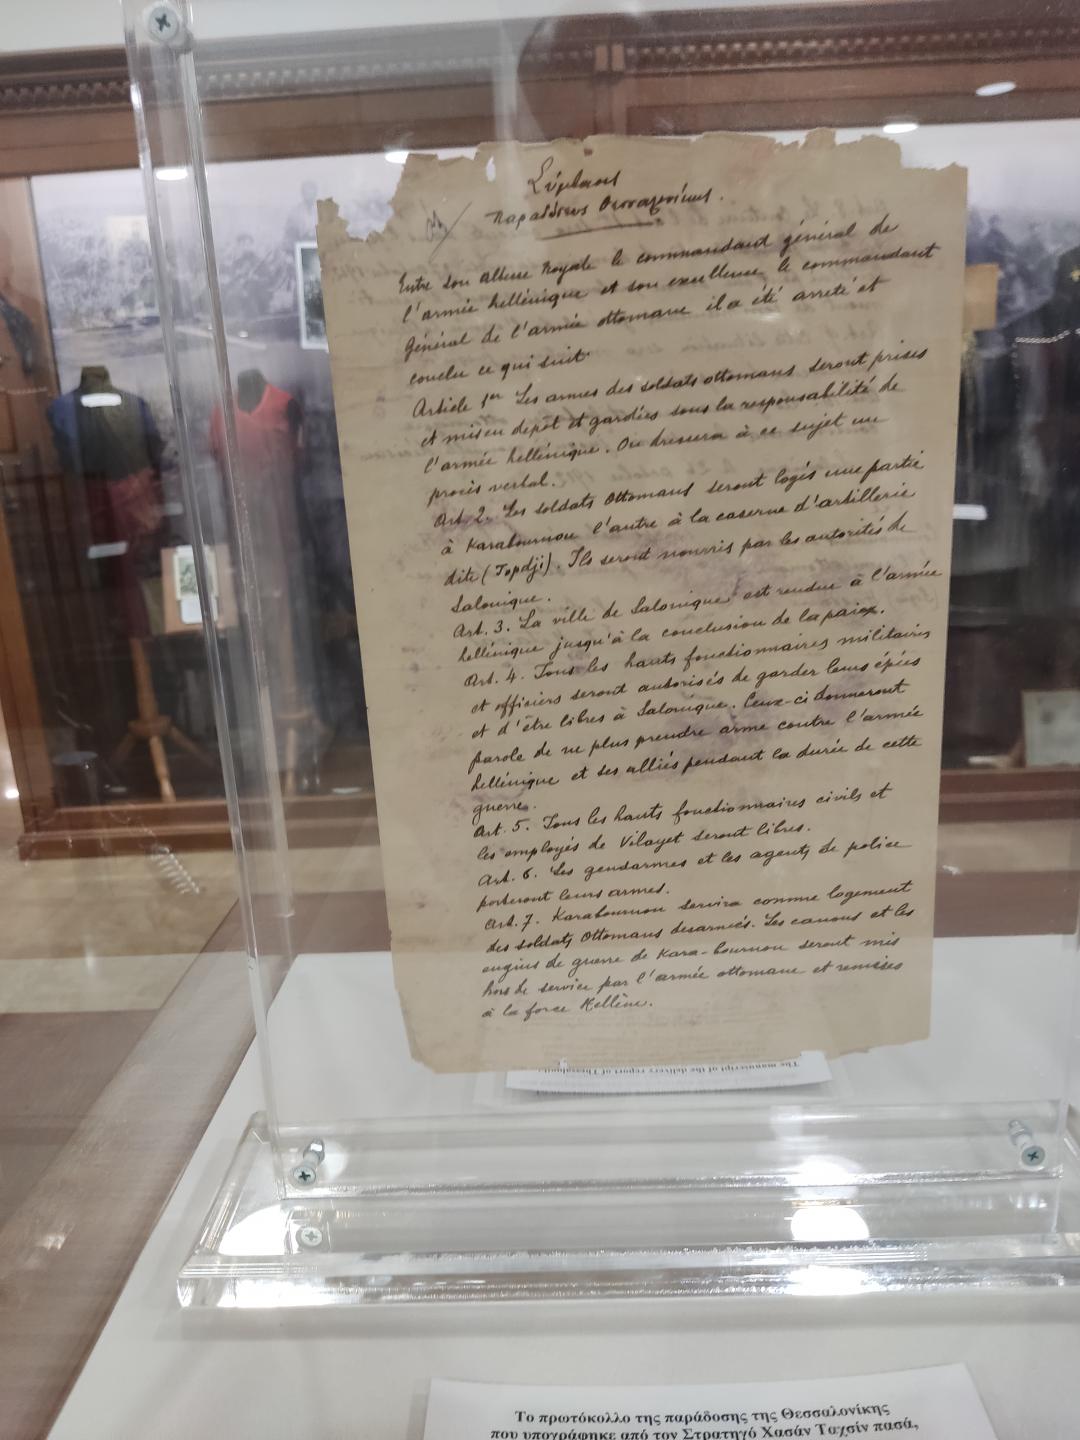 Σύμβασις
Παραδόσεως Θεσσαλονίκης.
Entre Son Altesse Royale le commandant général de
l'armée hellénique et son excellence le commandant
Général de l'armée ottomane il a été arreté et
conclu ce qui suit
Article 1er Les armes des soldats ottomans seront prises
et mis en depot et gardées sous la responsabilité de
l'armée hellénique. On dressera à ce sujet un
procès verbal.
Art. 2. Les soldats Ottomans seront logés une partie
à Karabournou l'autre à la caserne d'artillerie
dite (Topdji). Ils seront nourris par les autorités de
Salonique.
Art. 3. La ville de Salonique est rendue à l'armée
hellénique jusqu'à la conclusion de la paix.
Art. 4. Tous les hauts fonctionnaires militaires
et officiers seront autorisés de garder leurs épées
et d'être libres à Salonique. Ceux-ci donneront
parole de ne plus prendre arme contre l'armée
hellénique et ses alliés pendant la durée de cette
guerre.
Art. 5. Tous les hauts fonctionnaires civils et
les employés de Vilayet seront libres.
Art. 6. Les gendarmes et les agents de police
porteront leurs armes.
Art. 7. Karabournou servira comme logement
des soldats Ottomans desarmés. Les canons et les
engins de guerre de Kara-bournou seront mis
hors de service par l'armée ottomane et remises
à la force Hellène.
The manuscript of the delivery report of Thessaloniki
Το πρωτόκολλο της παράδοσης της Θεσσαλονίκης
που υπογράφηκε από τον Στρατηγό Χασάν Ταχσίν πασά,